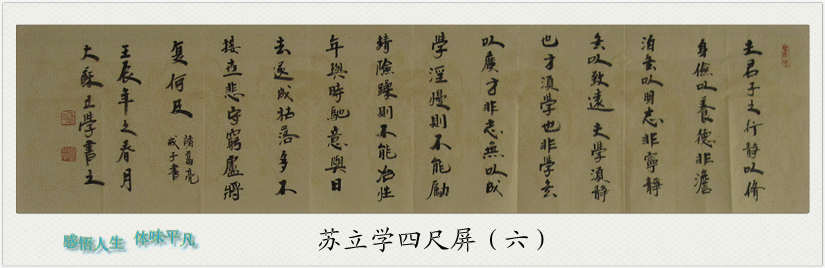 夫君子之行静以脩
身儉以養德非澹
泊無以明志非寧静
無以致遠夫學須静
也才須學也非學無
以廣才非志無以成
學淫慢則不能勵
精險躁則不能冶性
年與時馳意與日
去遂成枯落多不
接世悲守窮廬將
復何及
諸葛亮
戒子書
壬辰年之春月
大蘇立學書之
感悟人生 体味平凡
苏立学四尺屏（六）